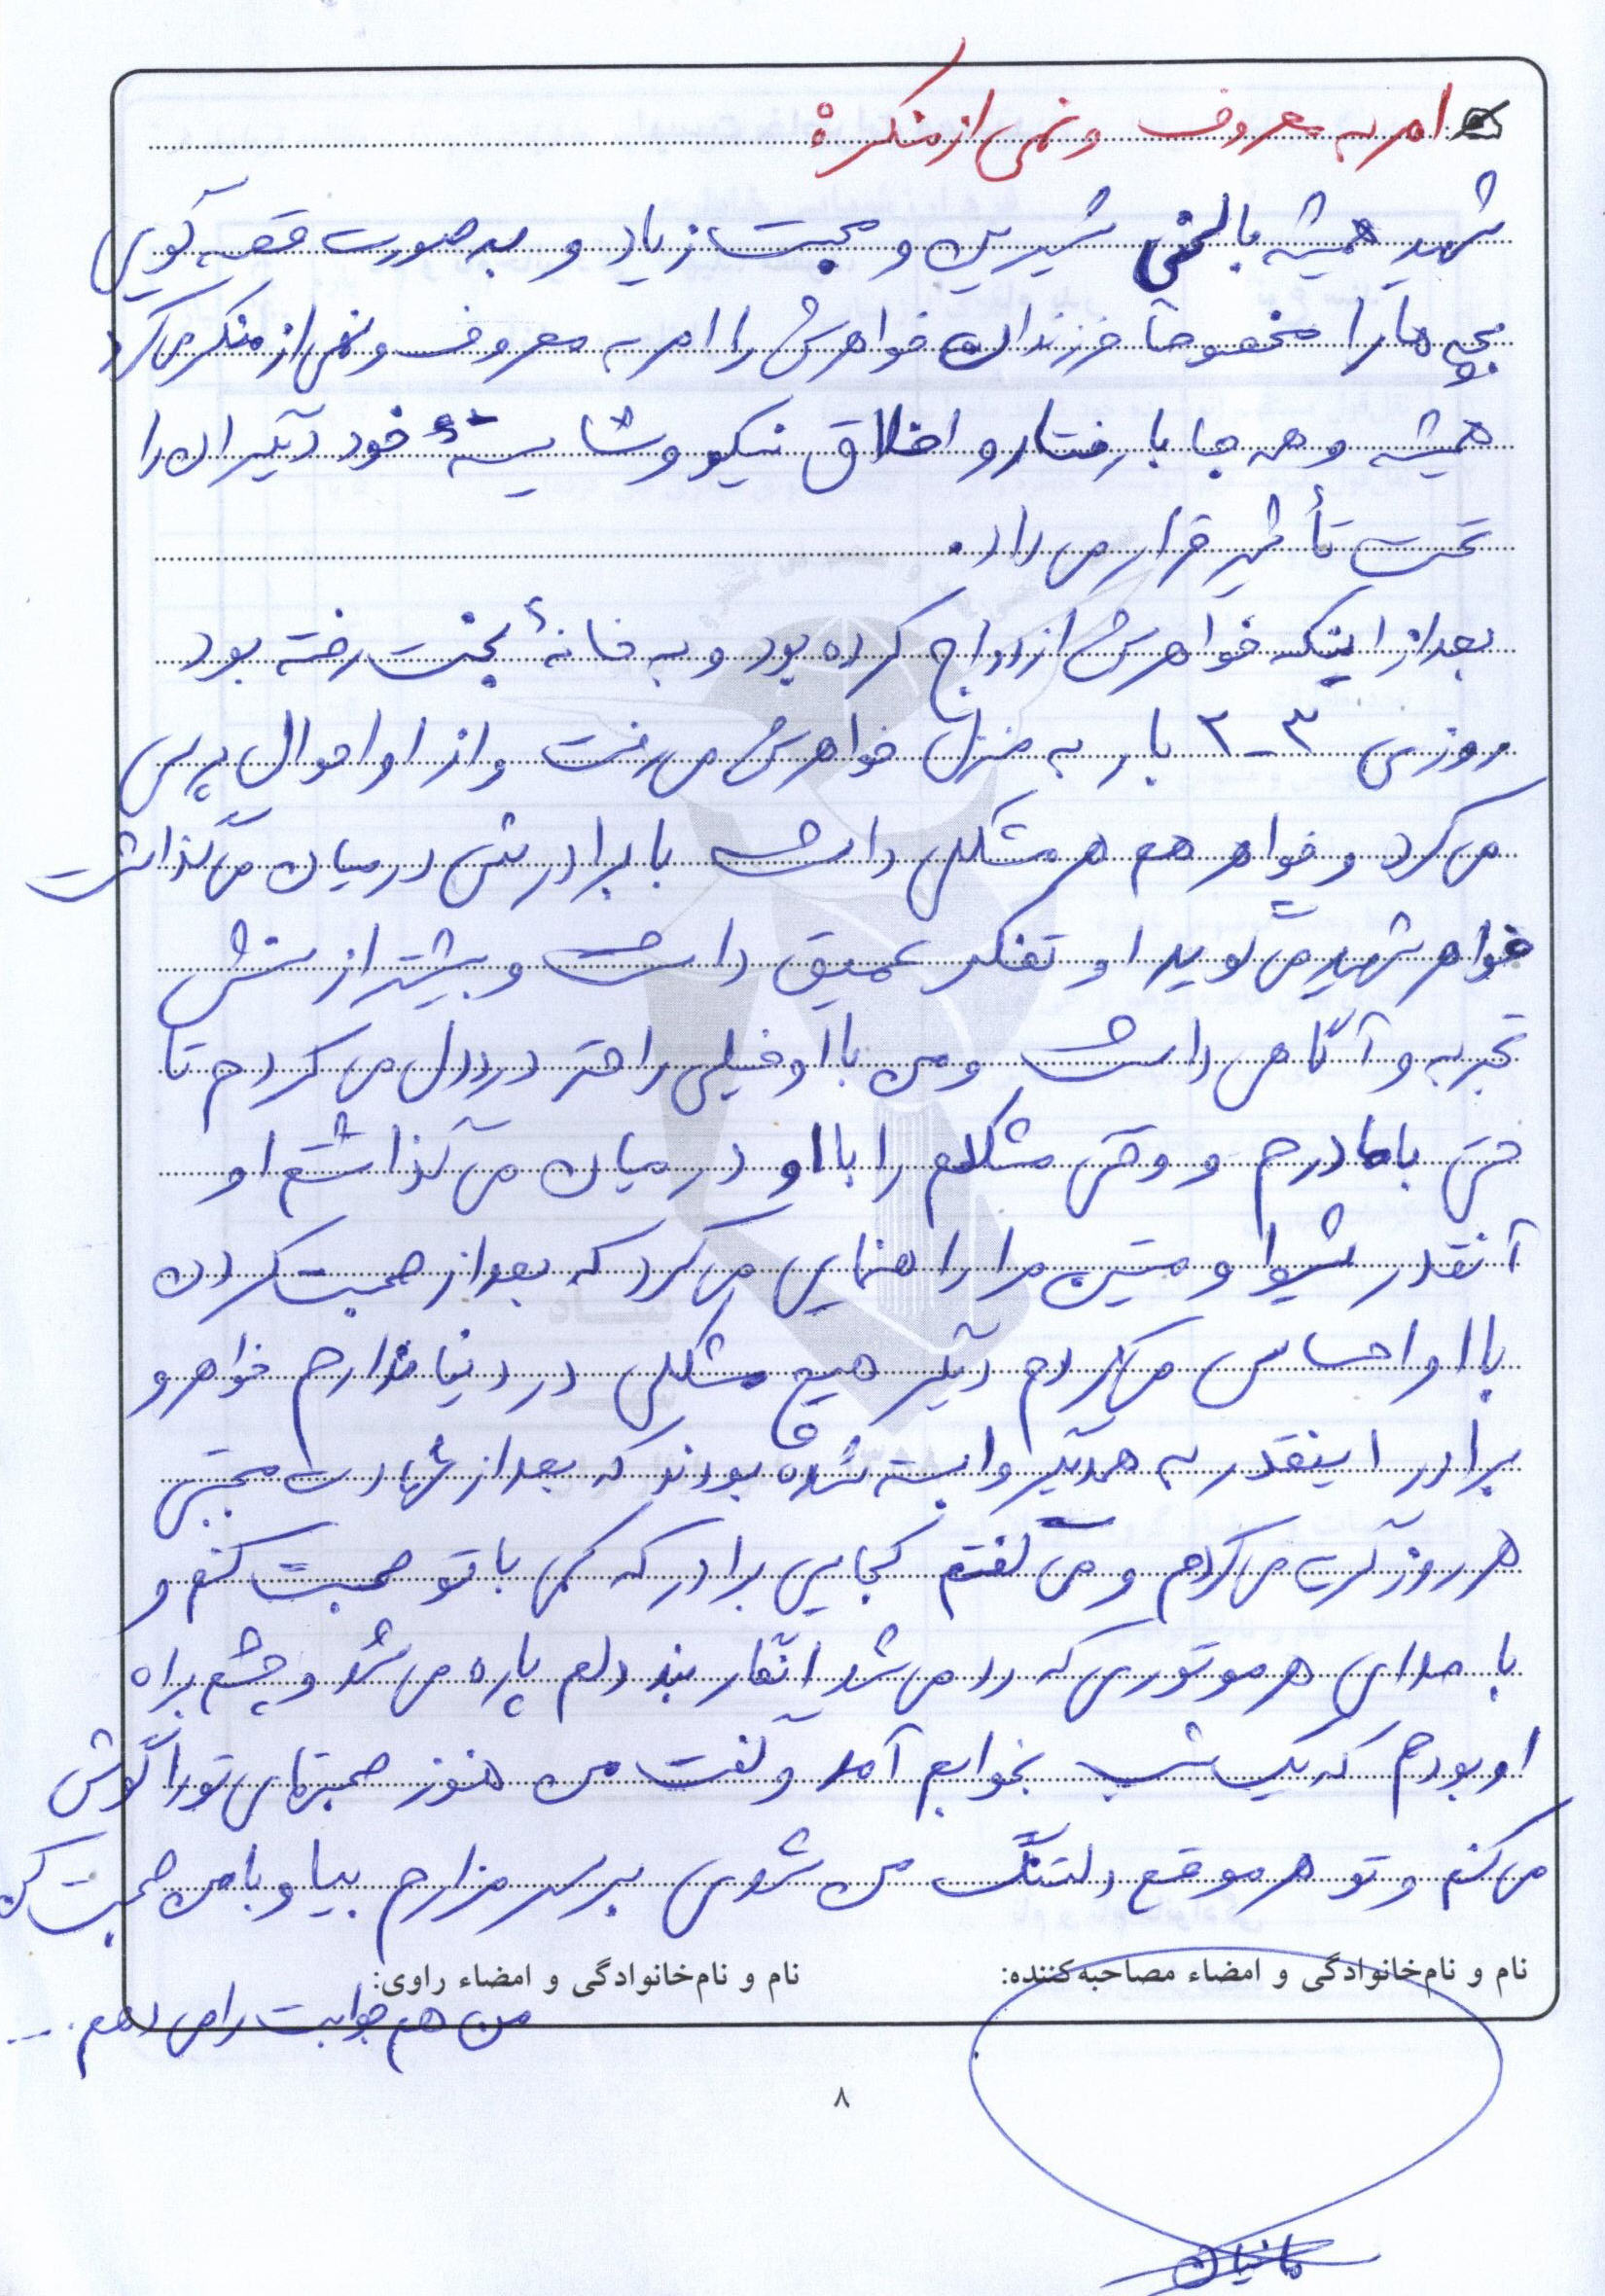 امر به معروف و نهی از منکر:
شهید همیشه با لحنی شیرین و محبت زیاد و به صورت قصه گویی
بچه ها را مخصوصاً فرزندان خواهرش را امر به معروف و نهی از منکر می کرد
همیشه و همه جا با رفتار و اخلاق نیکو و شایسته خود دیگران را
تحت تأثیر قرار می داد.
بعد از اینکه خواهرش ازدواج کرده بود و به خانۀ بخت رفته بود
روزی ۳-۲ بار به منزل خواهرش می رفت و از او احوال پرسی
می کرد و خواهر هم هر مشکلی داشت با برادرش در میان می گذاشت
خواهر شهید می گوید او تفکر عمیق داشت و بیشتر از سنش
تجربه و آگاهی داشت و من با او خیلی راحتر درددل می کردم تا
حتی با مادرم و وقتی مشکلم را با او در میان می گذاشتم او
آنقدر شیوا و متین مرا راهنمایی می کرد که بعد از صحبت کردن
با او احساس می کردم دیگر هیچ مشکلی در دنیا ندارم خواهر و
برادر اینقدر به همدیگر وابسته شده بودند که بعد از شهادت مجتبی
هر روز گریه می کردم و می گفتم کجایی برادر که کمی با تو صحبت کنم و
با صدای هر موتوری که رد می شد انگار بند دلم پاره می شد و چشم براه
او بودم که یک شب بخوابم آمد و گفت من هنوز صحبتهای تو را گوش
می کنم و تو هر موقع دلتنگ من شدی بر سر مزارم بیا و با من صحبت کن
نام و نام‌خانوادگی و امضاء مصاحبه‌کننده: نام و نام‌خانوادگی و امضاء راوی:
من هم جوابت را می دهم....
۸